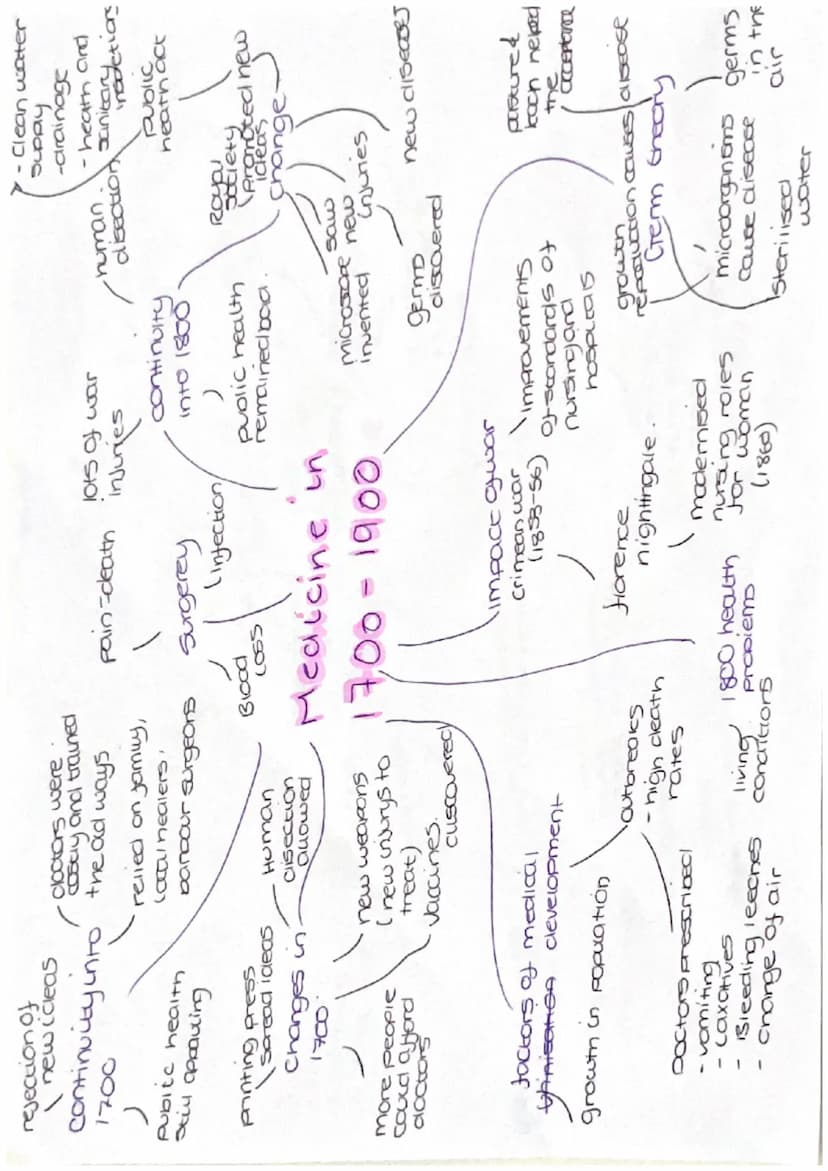 Medicine in
1700 - 1900
rejection of
new ideas
continuity into
1700
doctors were
costly and trained
the old ways
relied on family,
local healers,
barbour surgeons
public health
still appauling
printing press
spread ideas
Changes in
1700
Human
disection
allowed
new weapons
(new injurys to
treat)
vaccines
discovered
more people
could afford
doctors
Surgerey
pain=death
Blood
loss
infection
continuity
into 1800
lots of war
injuries
human
disection
public health
remained bad.
change
Royal
society
promoted new
ideas
public
health act
- Clean water
supply
-drainage
- health and
sanitary
microscope
invented
saw
new
injuries
germs
discovered
new diseases
Germ theory
growth
reproduction causes disease
both helped
the
acceptance
germs
in the
air
cause disease
Sterilised
water
impact of war
crimean war
(1853-56)
improvements
of standards of
nursing and
hospitals
florence
nightingale.
modernised
nursing roles
for woman
(1860)
1800 health
problems
living
conditions
factors of medical
development
growth in population
outbreaks
- high death
rates
Doctors prescribed
- vomiting
- Laxatives
- Bleeding leeches
- change of air